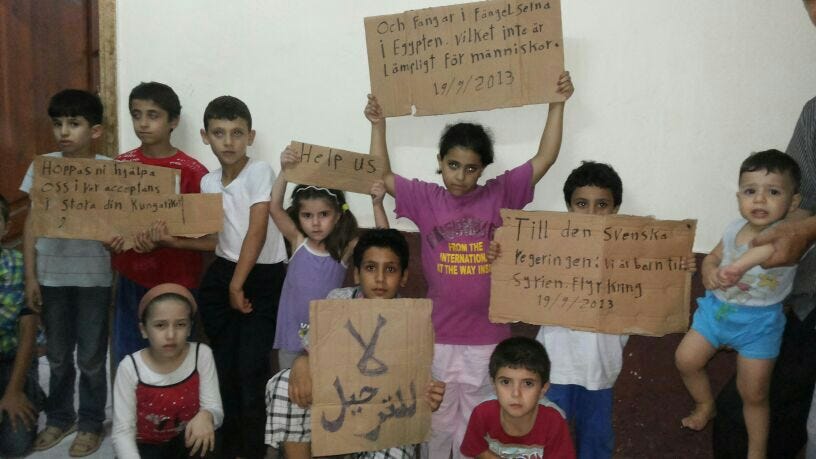 Och fangar i Fängelserna
i Egypten. Vilket inte är
Lämpligt för människor.
19/9/2013
Help us
Hoppas ni hjälpa
OSS i vår acceptans
i stora din Kungariket
Till den Svenska
Regeringen: Vi är barn till
Syrien. Flyr Kring
19/9/2013
FROM THE
INTERNATION
AT THE WAY
لا
للترحيل